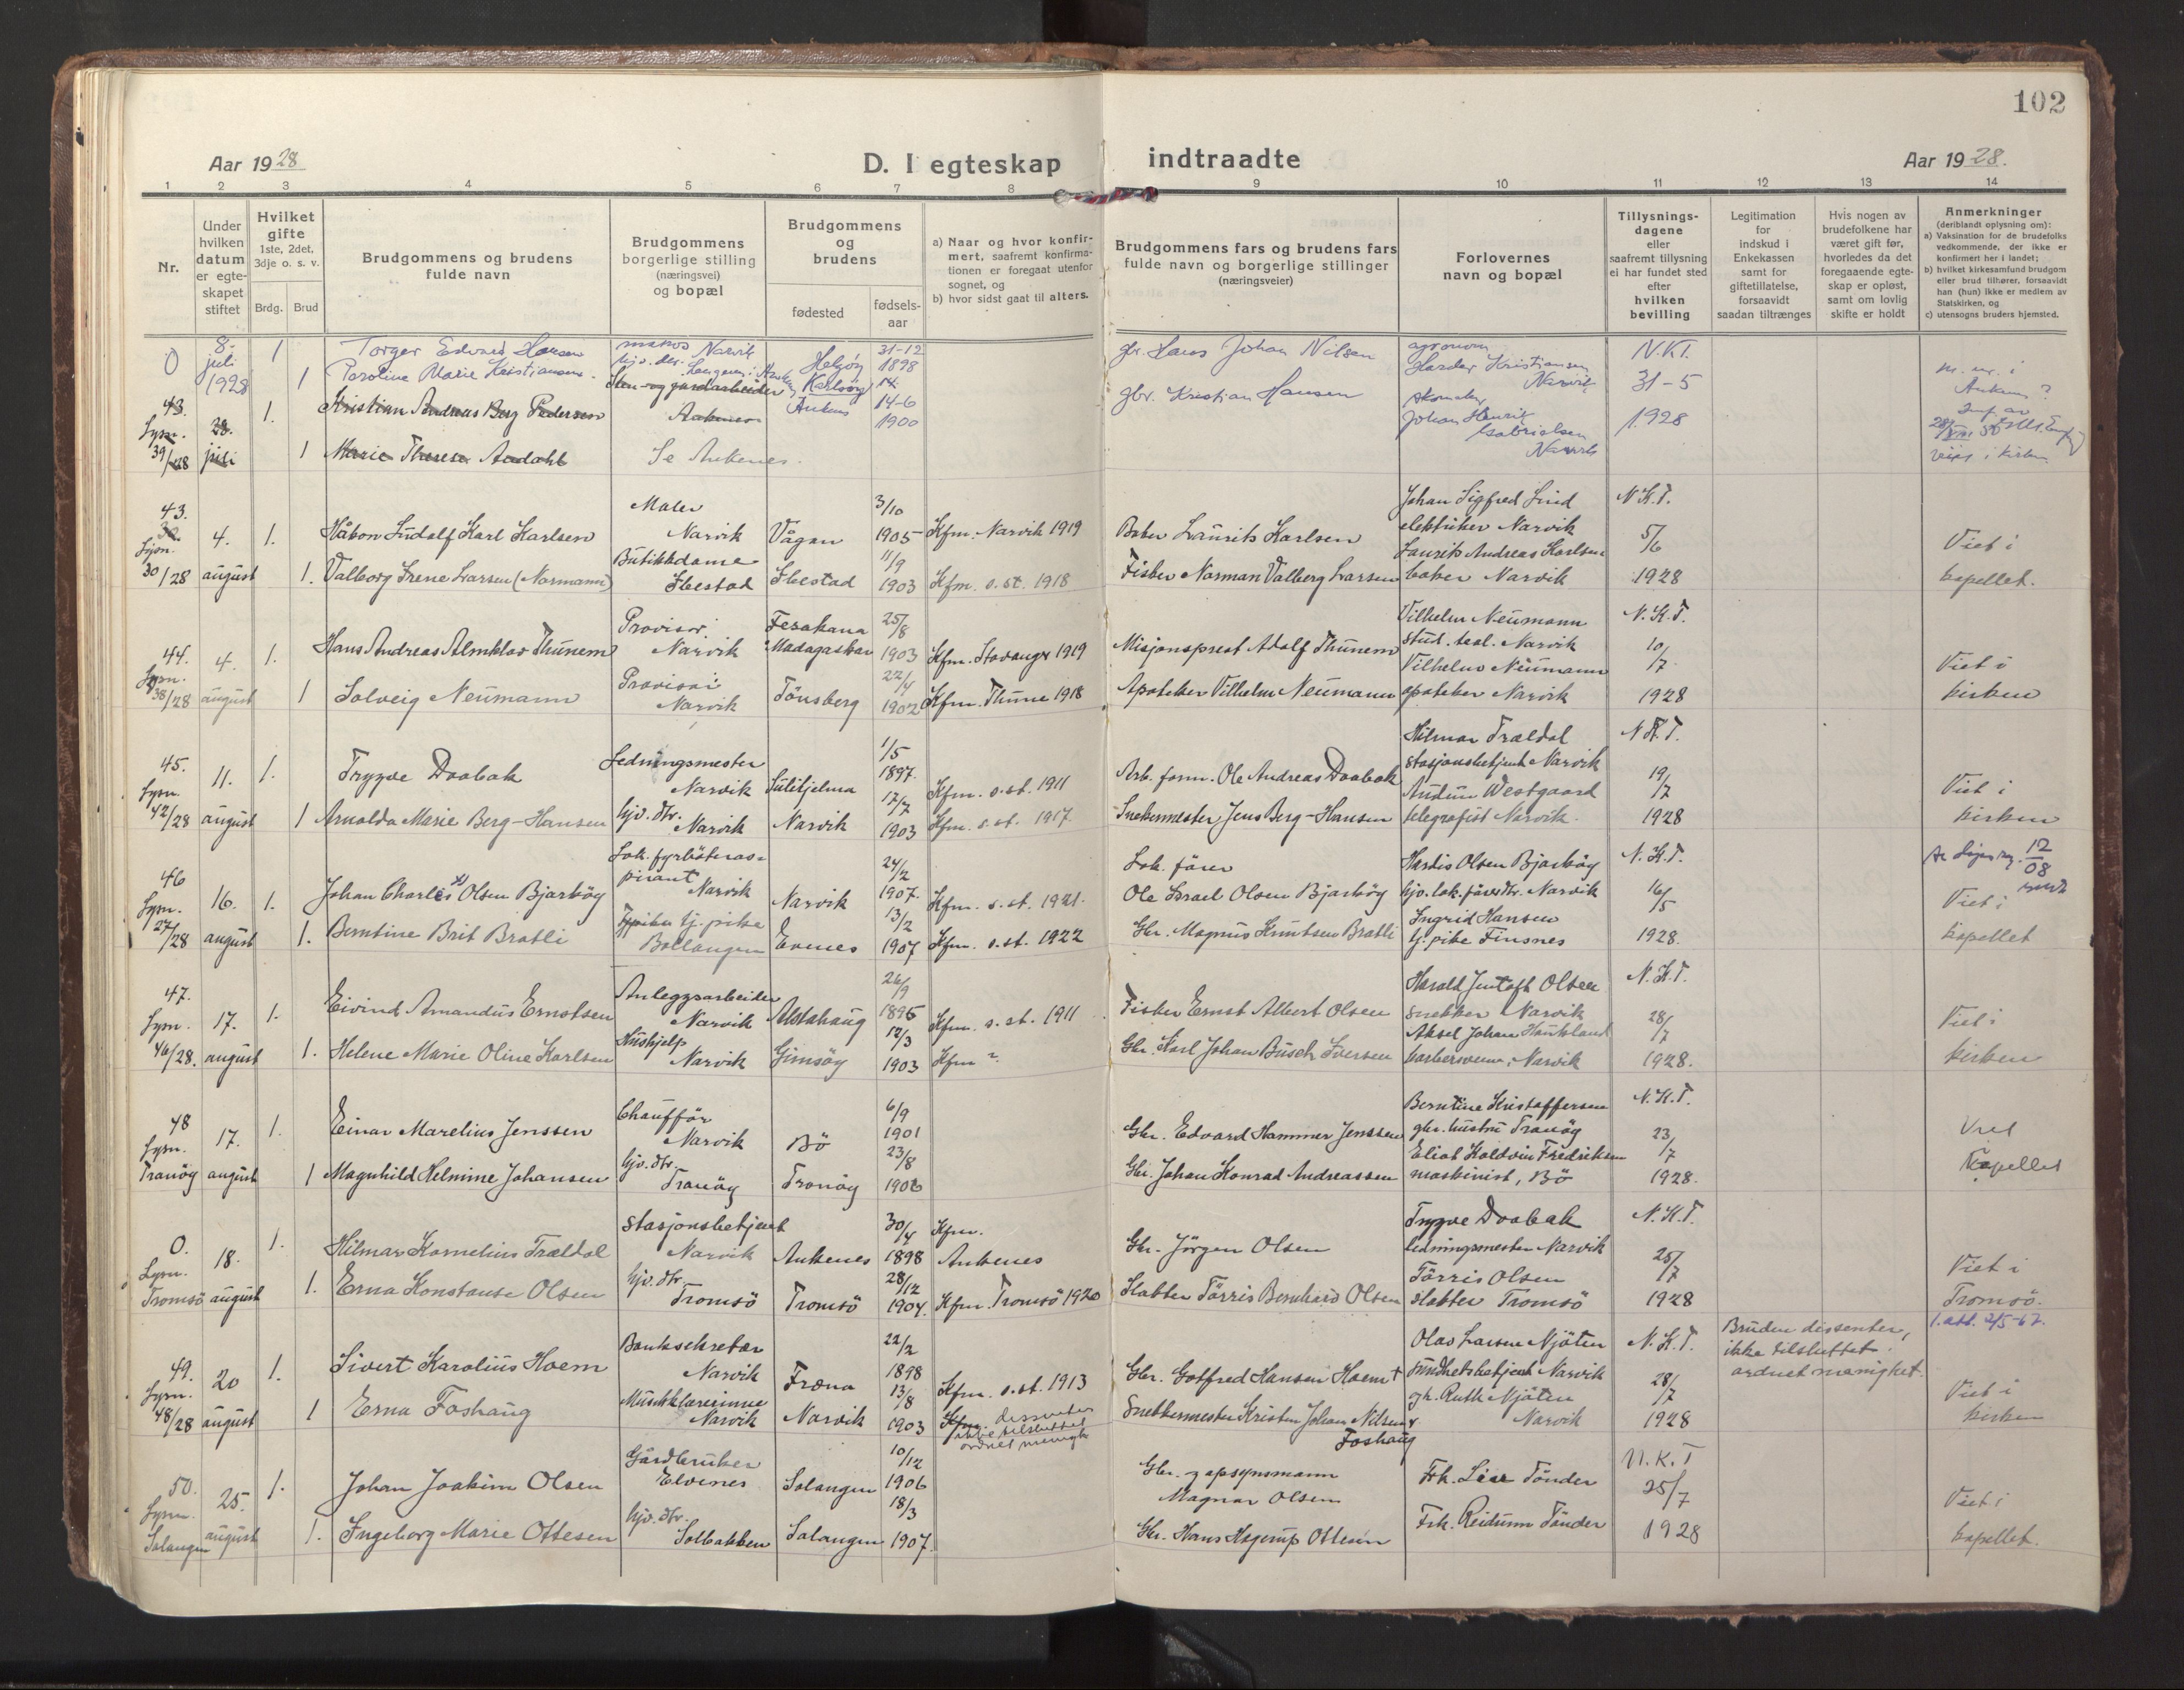 102
Aar 1928
D. I egteskap
indtraadte
Aar 1928.
1 2 3 4 5 6 7 8 9 10 11 12 13 14
Nr.
Under
hvilken
datum
er egte-
skapet
stiftet
Hvilket
gifte
1ste, 2det,
3dje o. s. v.
Brdg.
Brud
Brudgommens og brudens
fulde navn
Brudgommens
borgerlige stilling
(næringsvei)
og bopæl
Brudgommens
og
brudens
fødested
fødsels-
aar
a) Naar og hvor konfir-
mert, saafremt konfirma-
tionen er foregaat utenfor
sognet, og
b) hvor sidst gaat til alters.
Brudgommens fars og brudens fars
fulde navn og borgerlige stillinger
(næringsveier)
Forlovernes
navn og bopæl
Tillysnings-
dagene
eller
saafremt tillysning
ei har fundet sted
efter
hvilken
bevilling
Legitimation
for
indskud i
Enkekassen
samt for
giftetillatelse,
forsaavidt
saadan tiltrænges
Hvis nogen av
brudefolkene har
været gift før,
hvorledes da det
foregaaende egte-
skap er opløst,
samt om lovlig
skifte er holdt
Anmerkninger
(deriblandt oplysning om):
a) Vaksination for de brudefolks
vedkommende, der ikke er
konfirmert her i landet;
b) hvilket kirkesamfund brudgom
eller brud tilhører, forsaavidt
han (hun) ikke er medlem av
Statskirken, og
c) utensogns bruders hjemsted.
0
8.
juli
1928
1
Torger Edvard Hansen
Narvik
Helgøy
31-12
1898
gbr. Hans Johan Nilsen
agronom
Harder Kristiansen
Narvik
N.K.T.
1
Paroline Marie Kristiansen
Karlsøy
Ankenes
14-6
1900
gbr. Kristian Hansen
Johan Henrik
Gabrielsen
Narvik
31-5
1928
43.
Lysn.
39/28
28.
juli
1.
Kristian Andreas Berg Pedersen
Sten- og gardarbeider
Ankenes
1
Marie Therese Aadahl
Se Ankenes.
viet i kirken
43.
Lysn.
30/28
4.
august
1.
Håkon Ludolf Karl Karlsen
Maler
Narvik
Vågan
3/10
1905
Kfm. Narvik 1919
Baker Laurits Karlsen
Johan Sigfred Lind
elektriker Narvik
N.K.T.
1.
Valborg Irene Larsen (Normann)
Butikkdame
Ibestad
Ibestad
11/9
1903
Kfm. s. st. 1918
Fisker Norman Valberg Larsen
Laurits Andreas Karlsen
baker Narvik
5/6
1928
Viet i
kapellet.
44.
Lysn.
38/28
4.
august
1.
Hans Andreas Almklov Thunem
Provisor.
Narvik
Fesakana
Madagaskar
25/8
1903
Kfm. Stavanger 1919
Misjonsprest Adolf Thunem
Vilhelm Neumann
stud. real. Narvik
N.K.T.
1
Solveig Neumann
Provisor
Narvik
Tönsberg
22/4
1902
Kfm. Thime 1918
Apoteker Vilhelm Neumann
Vilhelm Neumann
apoteker Narvik
10/7
1928
Viet i
kirken
45.
Lysn.
42/28
11.
august
1.
Trygve Daabak
Ledningsmester
Narvik
Sulitjelma
1/5
1897.
Kfm. s. st. 1911
Arb. form. Ole Andreas Daabak
Hilmar Trældal
stasjonsbetjent Narvik
N.K.T.
1
Arnolda Marie Berg-Hansen
hjv. dtr.
Narvik
Narvik
12/7
1903
Kfm. s. st. 1917.
Snekkermester Jens Berg-Hansen
Audun Westgaard
telegrafist Narvik.
19/7
1928
Viet i
kirken
46
Lysn.
27/28
16.
august
1.
Johan Charles x) Olsen Bjarköy
Lok. fyrböteras-
pirant
Narvik
Narvik
24/2
1907.
Kfm. s. st. 1921.
Lok. förer
Ole Israel Olsen Bjarköy
Hardis Olsen Bjarköy
hjv. lok. förerdtr. Narvik
N.K.T.
1.
Berntine Brit Bratli
tj. pike
Ballangen
Evenes
13/2
1907
Kfm. s. st. 1922
Gbr. Magnus Knutsen Bratli
Ingrid Hansen
tj. pike Finsnes
16/5
1928.
Viet i
kapellet
47.
Lysn.
46/28.
17.
august
1.
Eivind Amandus Ernstsen
Anleggsarbeider
Narvik
Alstahaug
26/9
1895
Kfm. s. st. 1911
Fisker Ernst Albert Olsen
Harald Olsen
snekker Narvik
N.K.T.
1.
Helene Marie Oline Karlsen
Hushjelp
Narvik
Gimsöy
12/3
1903
Kfm ?
Gbr. Karl Johan Busch Iversen
Aksel Johan Haukland
barbersvenn, Narvik
28/7
1928.
Viet i
kirken
48
Lysn.
Tranöy
17.
august
1.
Einar Marelius Jenssen
Chaufför
Narvik
Bö
6/9
1901
Gbr. Edvard Hammer Jenssen
Berntine Kristoffersen
gbr. hustru Tranöy
N.K.T.
1
Magnhild Helmine Johansen
hjv. dtr.
Tranöy
Tranöy
23/8
1906
Gbr. Johan Konrad Andreassen
Eliot Koldvin Fredriksen
maskinist, Bö
23/7
1928.
Viet
Kapellet
0.
Lysn.
Tromsö
18.
august
1.
Hilmar Kornelius Trældal
Stasjonsbetjent
Narvik
Ankenes
30/4
1898
Kfm.
Ankenes
Gbr. Jörgen Olsen
Trygve Daabak
ledningsmester Narvik
N.K.T.
1.
Erna Konstanse Olsen
hjv. dtr.
Tromsö
Tromsö
28/12
1904.
Kfm. Tromsö 1920
Slakter Törris Bernhard Olsen
Törris Olsen
slakter Tromsö
25/7
1928
Viet i
Tromsö.
1. att. 2/5-67.
49.
Lysn.
48/28
20
august
1.
Sivert Karolius Hoem
Banksekretær
Narvik
Fræna
22/2
1898
Kfm. s. st. 1913
Gbr. Gotfred Hansen Hoem †
Olav Larsen Njöten
sundhetsbetjent Narvik
N.K.T.
Bruden dissenter,
ikke tilsluttet
ordnet menighet.
1
Erna Foshaug
Musikklærerinne
Narvik
Narvik
13/8
1903
Kfm. dissenter
ikke tilsluttet
ordnet menigh.
Snekkermester Kristen Johan Nilsen
Foshaug
gh. Ruth Njöten
Narvik
28/7
1928
Viet i
kirken
50.
Lysn.
Salangen
25.
august
1.
Johan Joakim Olsen
Gårdbruker
Elvenes
Salangen
10/12
1906
Gbr. og opsynsmann
Magnar Olsen
Frk. Lise Tönder
N.K.T
1.
Ingeborg Marie Ottesen
hjv. dtr.
Solbakken
Salangen
18/3
1907.
Gbr. Hans Hagerup Ottesen
Frk. Reidunn Tönder
25/7
1928
Viet i
kapellet.